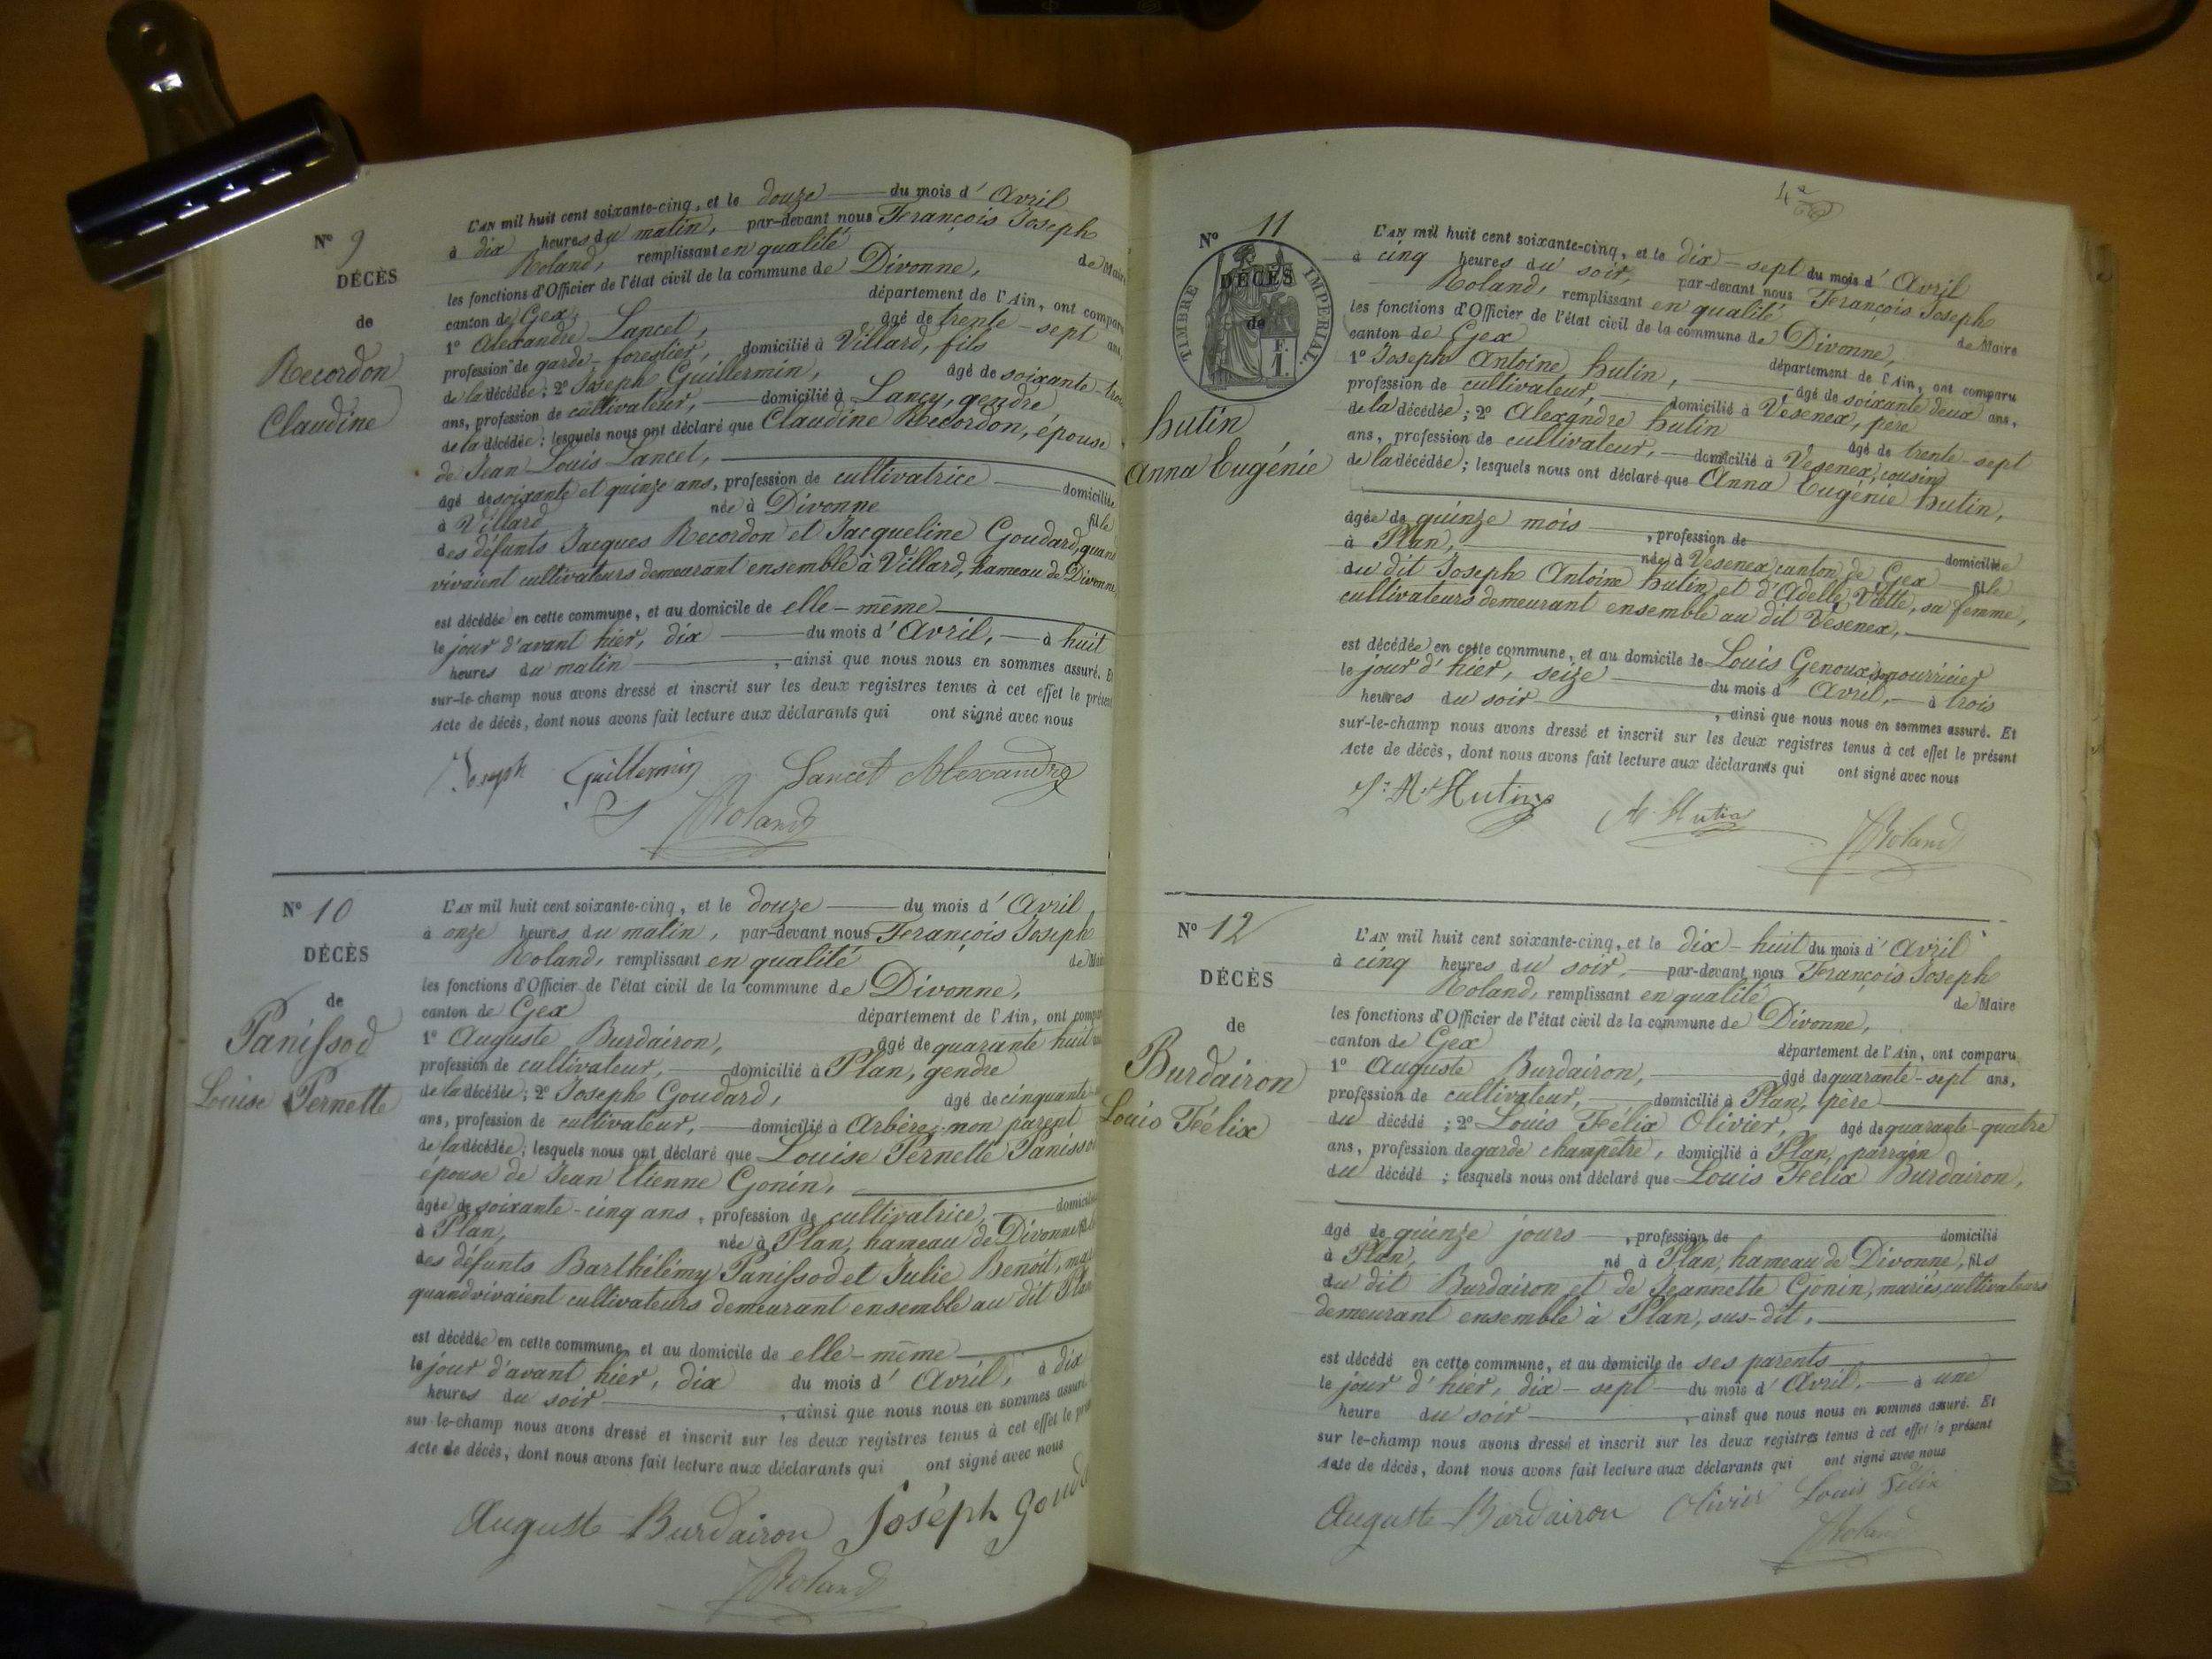 N° 9
DÉCÈS
de
Recordon
Claudine
L'AN mil huit cent soixante-cinq, et le douze du mois d'Avril
à dix heures du matin, par-devant nous François Joseph
Roland, remplissant en qualité de Maire
les fonctions d'Officier de l'état civil de la commune de Divonne,
canton de Gex, département de l'Ain, ont compar
1° Alexandre Lancet, âgé de trente-sept ans,
profession de garde-forestier, domicilié à Villard, fils
de la décédée; 2° Joseph Guillermin, âgé de soixante-trois
ans, profession de cultivateur, domicilié à Lancy, gendre
de la décédée; lesquels nous ont déclaré que Claudine Recordon, épouse
de Jean Louis Lancet,
âgé de soixante et quinze ans, profession de cultivatrice domiciliée
à Villard née à Divonne fille
des défunts Jacques Recordon et Jacqueline Goudard, quand
vivaient cultivateurs demeurant ensemble à Villard, hameau de Divonne
est décédée en cette commune, et au domicile de elle-même
le jour d'avant hier, dix du mois d'Avril, à huit
heures du matin, ainsi que nous nous en sommes assuré. Et
sur-le-champ nous avons dressé et inscrit sur les deux registres tenus à cet effet le présent
Acte de décès, dont nous avons fait lecture aux déclarants qui ont signé avec nous
Joseph Guillermin Lancet Alexandre
Roland
N° 10
DÉCÈS
de
Panissod
Louise Pernette
L'AN mil huit cent soixante-cinq, et le douze du mois d'Avril
à onze heures du matin, par-devant nous François Joseph
Roland, remplissant en qualité de Mai
les fonctions d'Officier de l'état civil de la commune de Divonne,
canton de Gex département de l'Ain, ont compa
1° Auguste Burdairon, âgé de quarante huit
profession de cultivateur, domicilié à Plan, gendre
de la décédée; 2° Joseph Goudard, âgé de cinquante
ans, profession de cultivateur, domicilié à Arbère, non parent
de la décédée; lesquels nous ont déclaré que Louise Pernette Panissod
épouse de Jean Etienne Gonin,
âgée de soixante-cinq ans, profession de cultivatrice, domiciliée
à Plan, née à Plan, hameau de Divonne fille
des défunts Barthélémy Panissod et Julie Benoit, ma
quand vivaient cultivateurs demeurant ensemble au dit Plan
est décédée en cette commune, et au domicile de elle-même
le jour d'avant hier, dix du mois d'Avril, à dix
heures du soir, ainsi que nous nous en sommes assuré.
sur-le-champ nous avons dressé et inscrit sur les deux registres tenus à cet effet le pré
Acte de décès, dont nous avons fait lecture aux déclarants qui ont signé avec nous
Auguste Burdairon Joséph Goud
Roland
4e
N° 11
TIMBRE IMPÉRIAL
DÉCÈS
de
F.
1.
hutin
Anna Eugénie
L'AN mil huit cent soixante-cinq, et le dix-sept du mois d'Avril
à cinq heures du soir, par-devant nous François Joseph
Roland, remplissant en qualité de Maire
les fonctions d'Officier de l'état civil de la commune de Divonne,
canton de Gex département de l'Ain, ont comparu
1° Joseph Antoine hutin, âgé de soixante deux ans,
profession de cultivateur, domicilié à Vesenex, père
de la décédée; 2° Alexandre hutin âgé de trente-sept
ans, profession de cultivateur, domicilié à Vesenex, cousin
de la décédée; lesquels nous ont déclaré que Anna Eugénie hutin,
âgée de quinze mois, profession de domiciliée
à Plan, née à Vesenex canton de Gex fille
du dit Joseph Antoine hutin et d'Adelle Vatte, sa femme,
cultivateurs demeurant ensemble au dit Vesenex,
est décédée en cette commune, et au domicile de Louis Genoux, nourricier
le jour d'hier, seize du mois d'Avril, à trois
heures du soir, ainsi que nous nous en sommes assuré. Et
sur-le-champ nous avons dressé et inscrit sur les deux registres tenus à cet effet le présent
Acte de décès, dont nous avons fait lecture aux déclarants qui ont signé avec nous
Hutin A. Hutin Roland
N° 12
DÉCÈS
de
Burdairon
Louis Félix
L'AN mil huit cent soixante-cinq, et le dix-huit du mois d'Avril
à cinq heures du soir, par-devant nous François Joseph
Roland, remplissant en qualité de Maire
les fonctions d'Officier de l'état civil de la commune de Divonne,
canton de Gex département de l'Ain, ont comparu
1° Auguste Burdairon, âgé de quarante-sept ans,
profession de cultivateur, domicilié à Plan, père
du décédé; 2° Louis Félix Olivier, âgé de quarante-quatre
ans, profession de garde champêtre, domicilié à Plan, parrain
du décédé; lesquels nous ont déclaré que Louis Félix Burdairon,
âgé de quinze jours, profession de domicilié
à Plan, né à Plan, hameau de Divonne, fils
du dit Burdairon et de Jeannette Gonin, mariés, cultivateurs
demeurant ensemble à Plan, sus-dit,
est décédé en cette commune, et au domicile de ses parents
le jour d'hier, dix-sept du mois d'Avril, à une
heure du soir, ainsi que nous nous en sommes assuré. Et
sur le-champ nous avons dressé et inscrit sur les deux registres tenus à cet effet le présent
Acte de décès, dont nous avons fait lecture aux déclarants qui ont signé avec nous
Auguste Burdairon Olivier Louis Félix
Roland